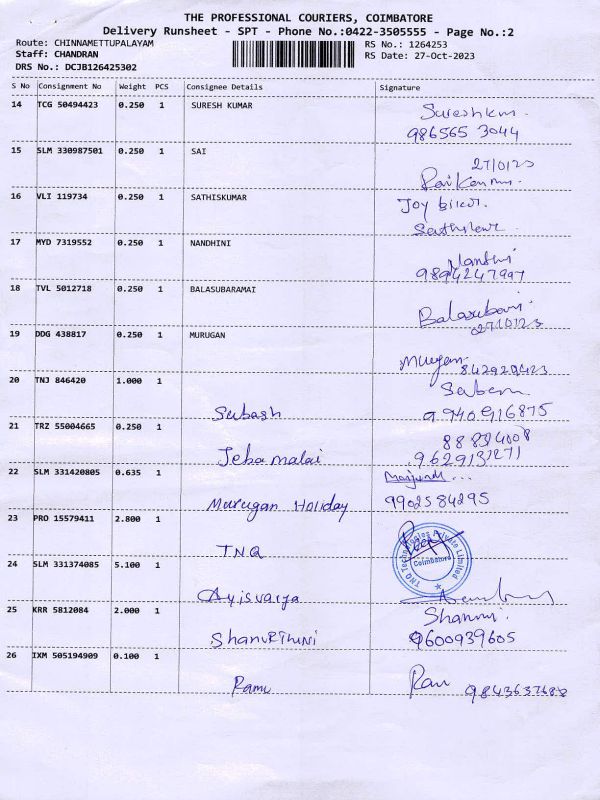 THE PROFESSIONAL COURIERS, COIMBATORE
Delivery Runsheet - SPT - Phone No.:0422-3505555 - Page No.:2
Route: CHINNAMETTUPALAYAM RS No.: 1264253
Staff: CHANDRAN RS Date: 27-Oct-2023
DRS No.: DCJB126425302
S No Consignment No Weight PCS Consignee Details Signature
14 TCG 50494423 0.250 1 SURESH KUMAR
986565 3044
15 SLM 330987501 0.250 1 SAI
27/10/23
16 VLI 119734 0.250 1 SATHISKUMAR
Joy
17 MYD 7319552 0.250 1 NANDHINI
9894247997
18 TVL 5012718 0.250 1 BALASUBARAMAI
27/10/23
19 DDG 438817 0.250 1 MURUGAN
Murugan
20 TNJ 846420 1.000 1
Subash
21 TRZ 55004665 0.250 1
Jeba malai
22 SLM 331420805 0.635 1
Murugan Holiday 9902584295
23 PRO 15579411 2.800 1
TNQ
TNQ Technologies Private Limited
Coimbatore
24 SLM 331374085 5.100 1
25 KRR 5812084 2.000 1
9600939605
26 IXM 505194909 0.100 1
Ramu